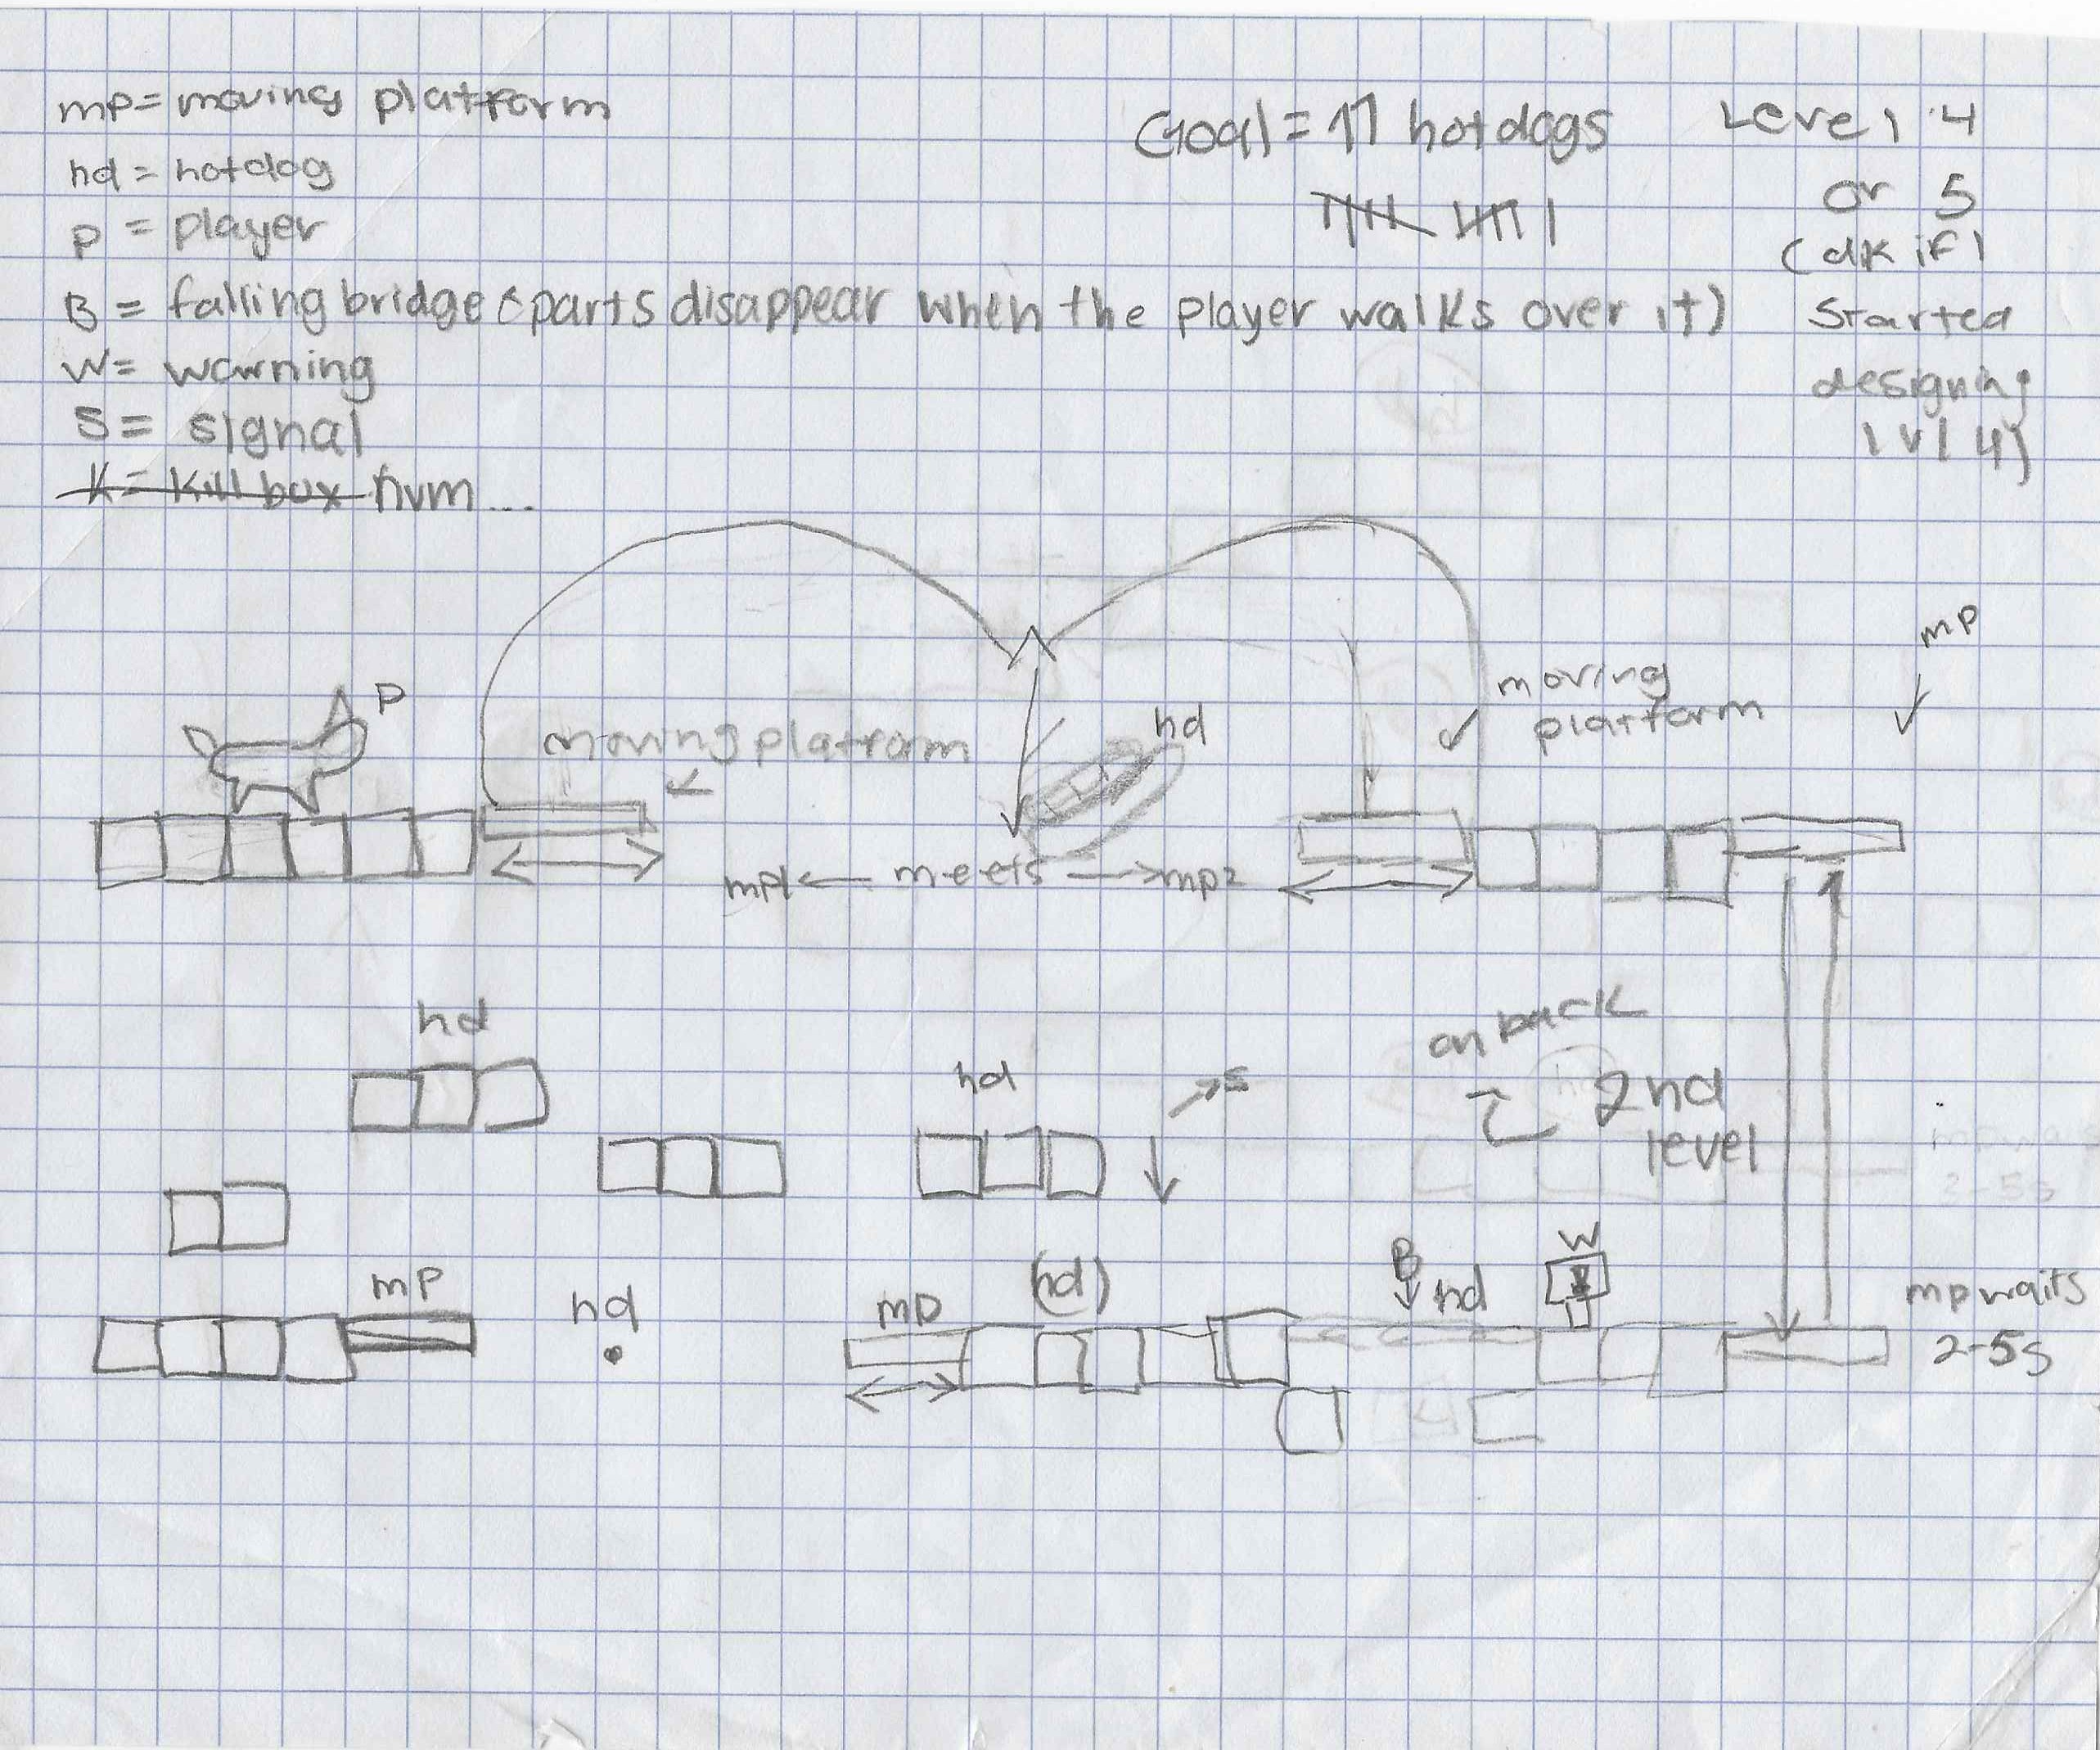 mp= moving platform
hd = hotdog
p = player
B = falling bridge (parts disappear when the player walks over it)
W= warning
S= signal
K= Kill box nvm...
Goal = 17 hotdogs
Level 4
or 5
(dk if I
started
designing
lvl 4)
p
moving platform
hd
moving
platform
mp
mp1 ← meets → mp2
hd
hd
s
on back
2nd
level
mp
hd
mp
(hd)
B
hd
W
mp waits
2-5s